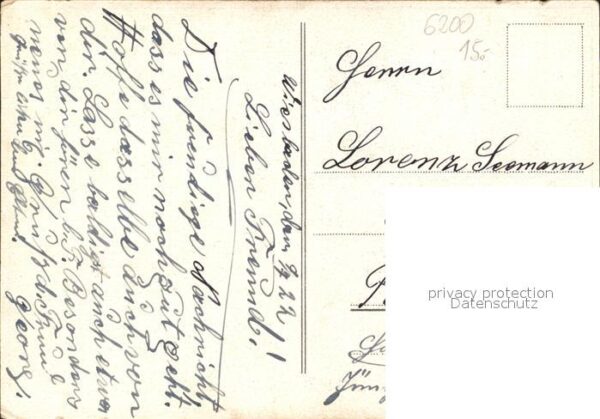 Wiesbaden, den 9/4 22
Lieber Freund!
Die freudige Nachricht,
dass es mir noch gut geht.
Hoffe dasselbe auch von
dir. Lasse baldigst auch etwas
von dir hören bes. Besonders
neues mir. Gruß d. Freund
Georg.
6200
15.-
Herrn
Lorenz Seemann
privacy protection
Datenschutz